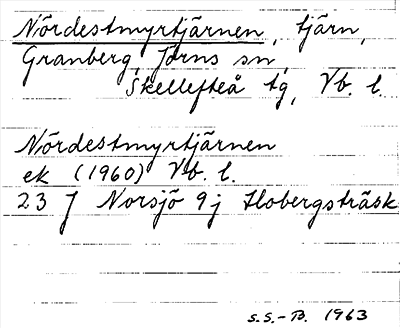 Nördestmyrtjärnen, tjärn,
Granberg, Jörns sn,
Skellefteå tg, Vb. l.
Nördestmyrtjärnen
ek (1960) Vb. l.
23 J Norsjö 9j Holbergsträsk
S.S.-B. 1963